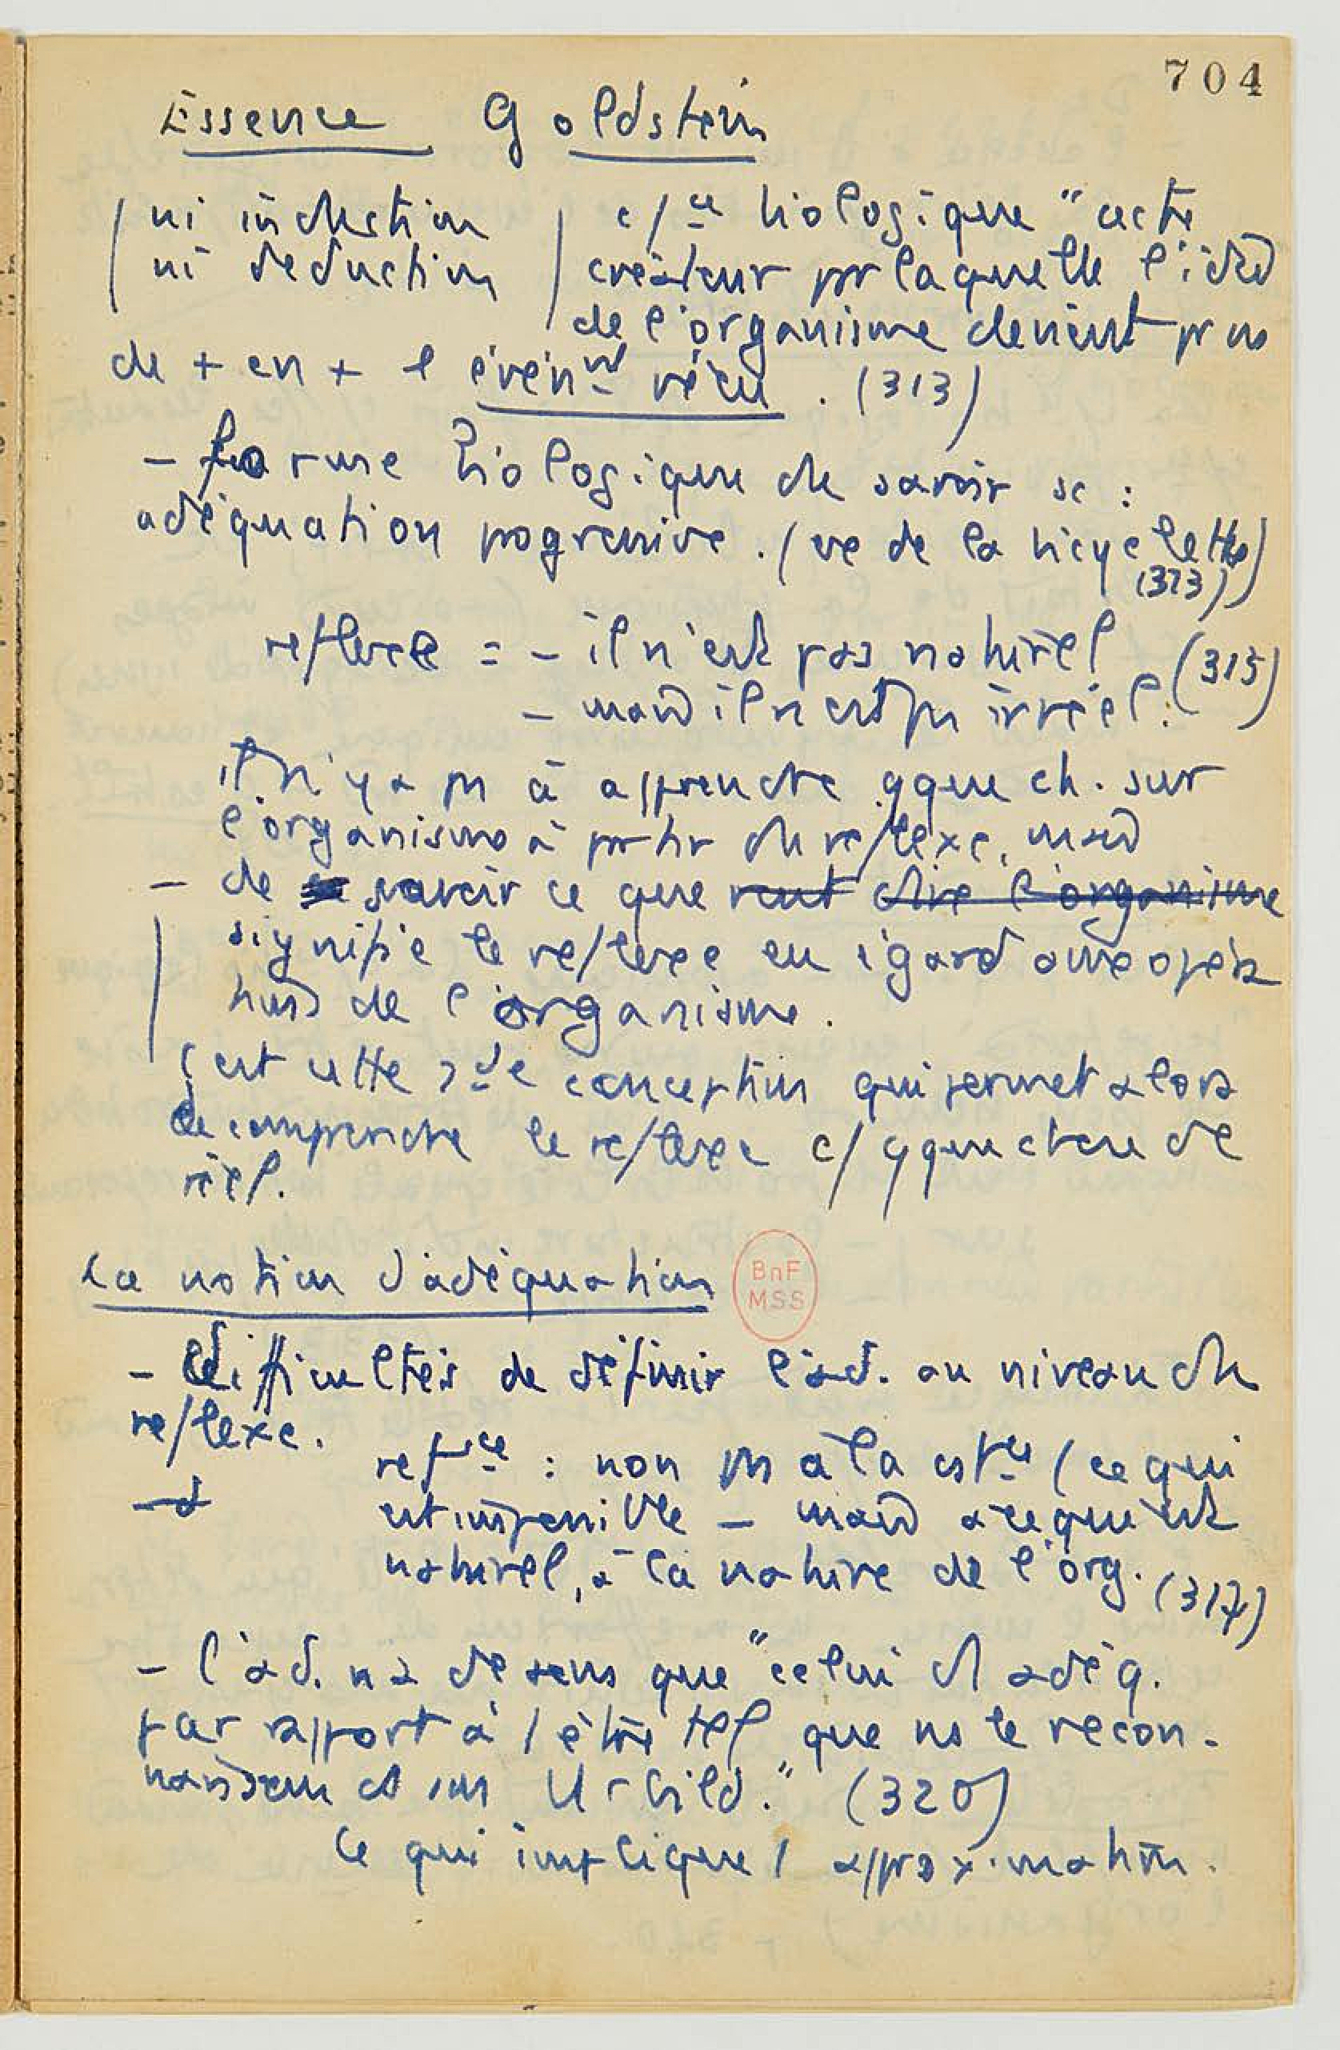 704
Essence Goldstein
ni induction
ni deduction
c/ce biologique "acte
créateur par laquelle l'idée
de l'organisme devient pr ns
de + en + l événnt vécu. (313)
- forme biologique du savoir sc :
adéquation progressive. (ve de la bicyclette)
(313)
reflexe = - il n'est pas naturel (315)
- mais il n'est pas irréel.
il n'y a pas à apprendre qque ch. sur
l'organisme à partir du reflexe, mais
- de savoir ce que veut dire l'organisme
signifie le reflexe eu égard aux opéra
tions de l'organisme.
C'est cette 2de conception qui permet alors
de comprendre le reflexe c/ qque chose de
réel.
La notion d'adéquation
BnF
MSS
- Difficultés de définir l'ad. au niveau du
reflexe.
refce : non pas à la cstce (ce qui
est impossible - mais à ce qui est
naturel, à la nature de l'org. (317)
- l'ad. n'a de sens que "celui d adéq.
par rapport à l être tel que ns le recon-
naissons ds son Urbild." (320)
Ce qui implique l approximation.